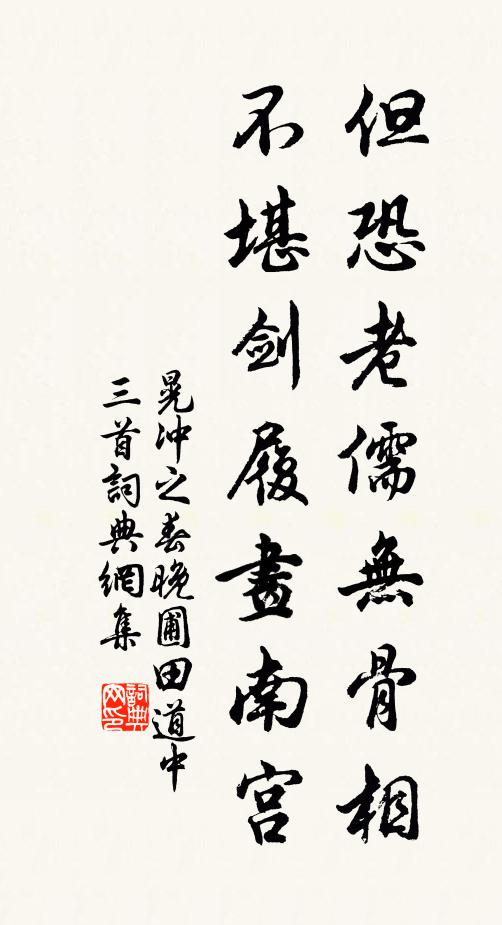 但恐老儒無骨相
不堪劍履畫南宮
晁沖之春晚圃田道中
三首詞典網集
詞典
网印